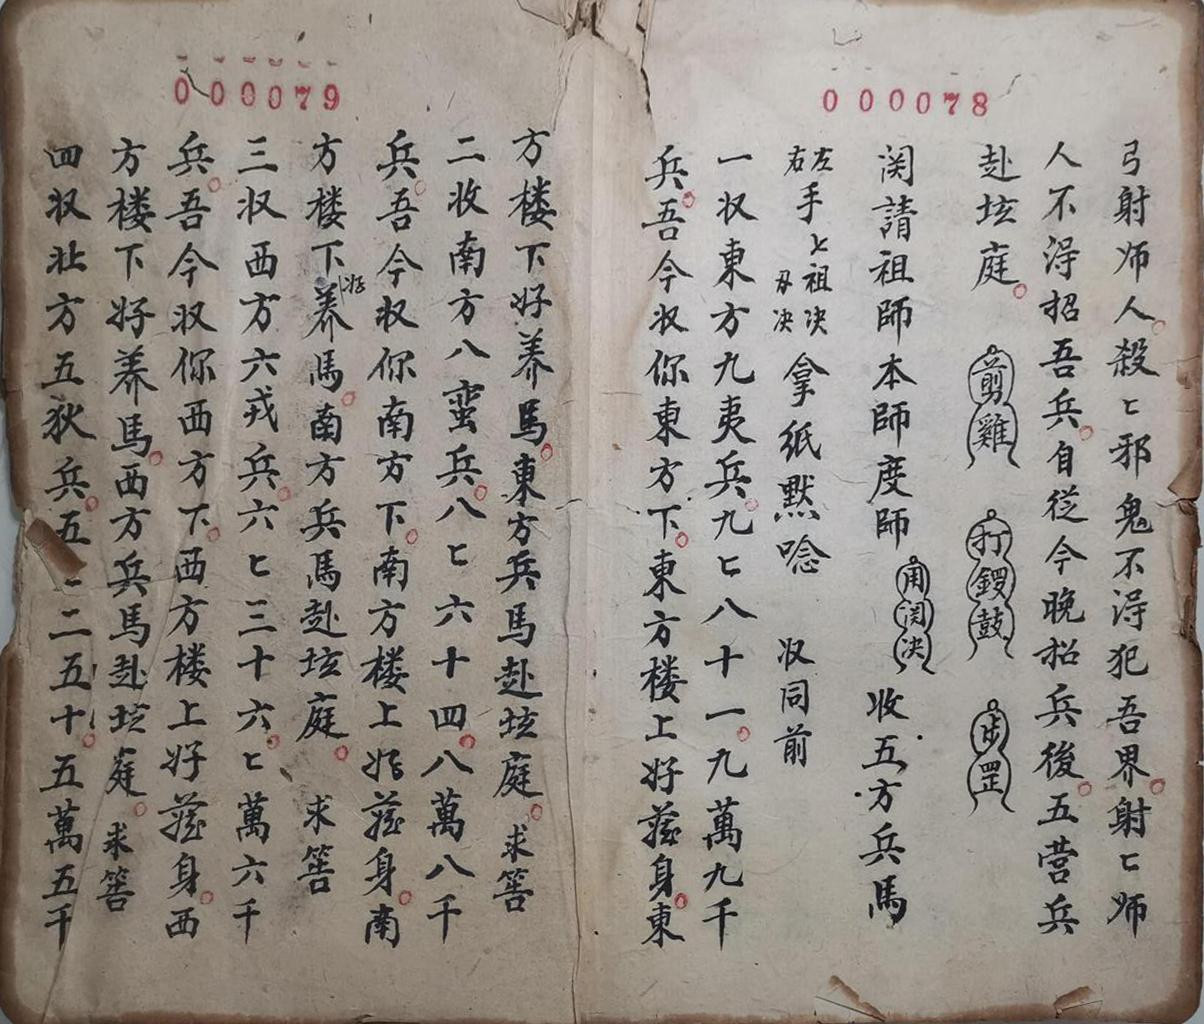 000078
弓射师人殺匕邪鬼不淂犯吾界射匕师
人不淂招吾兵自従今晚招兵後五营兵
赴坛庭 剪雞 打鑼鼓 步罡
関請祖師本師度師 角関决 收五方兵馬
左右手匕祖决刃决拿紙黙唸 収同前
一収東方九夷兵九匕八十一九萬九千
兵吾今収你東方下東方楼上好藏身東
000079
方楼下好养馬東方兵馬赴坛庭 求筶
二收南方八蛮兵八匕六十四八萬八千
兵吾今収你南方下南方楼上好藏身南
方楼下好养馬南方兵馬赴坛庭 求筶
三収西方六戎兵六匕三十六匕萬六千
兵吾今収你西方下西方楼上好藏身西
方楼下好养馬西方兵馬赴坛庭 求筶
四収北方五狄兵五匕二五十五萬五千